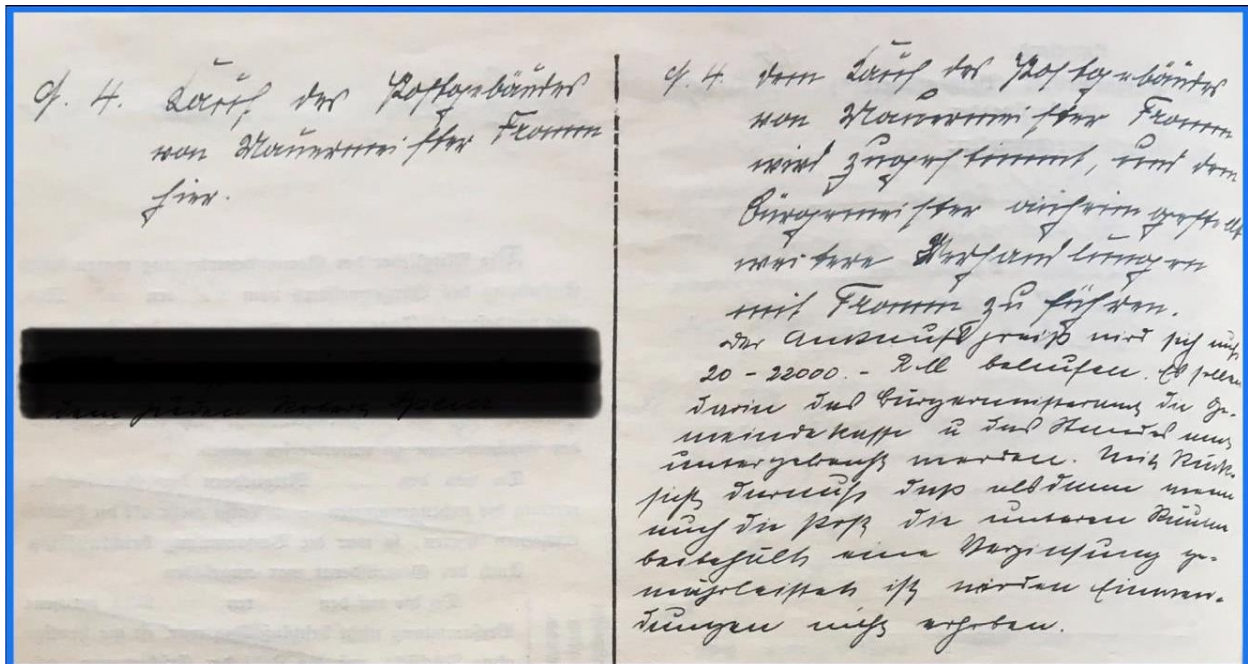 §. 4. Kauf des Postgebäudes
von Mauermeister Fromm
hier.
§. 4. dem Kauf des Postgebäudes
von Mauermeister Fromm
wird zugestimmt, und dem
Bürgermeister anheim gestellt
weitere Verhandlungen
mit Fromm zu führen.
Der Ankaufspreiß wird sich auf
20 - 22000.- RM belaufen. Es sollen
darin das Bürgermeisteramt die Ge-
meindekasse u das Standesamt
untergebracht werden. Mit Rück-
sicht darauf daß alsdann wenn
auch die Post die unteren Räume
beibehält eine Verzinsung ge-
währleistet ist werden Einwen-
dungen nicht erhoben.